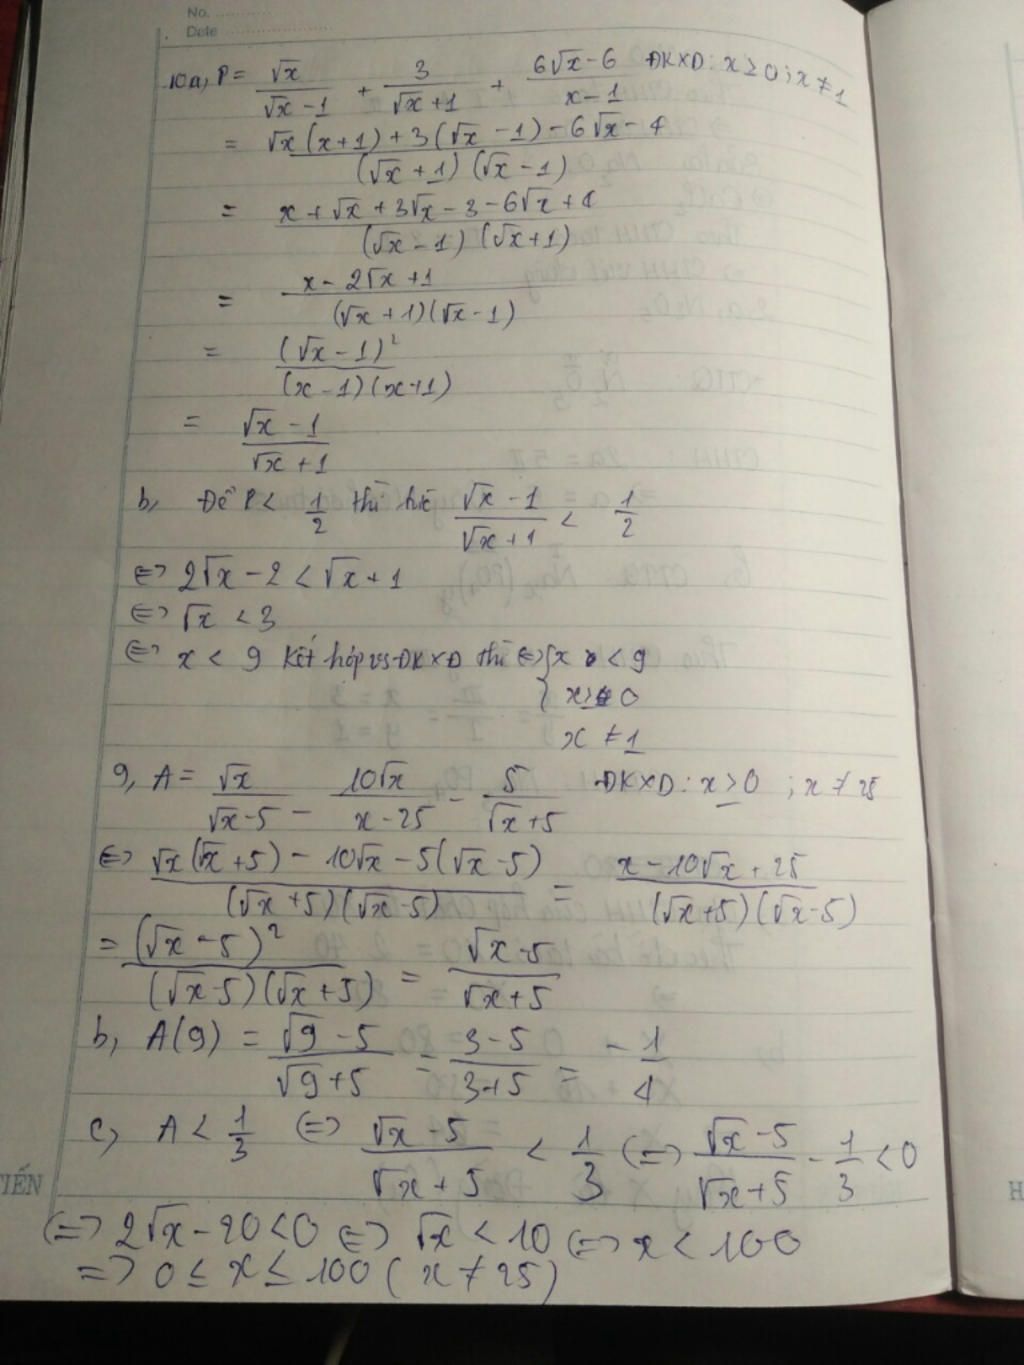 No. ...............
Date ....................
10a, P = √x/(√x - 1) + 3/(√x + 1) + (6√x - 6)/(x - 1) ĐKXĐ: x ≥ 0 ; x ≠ 1
= (√x(x + 1) + 3(√x - 1) - 6√x - 4)/((√x + 1)(√x - 1))
= (x + √x + 3√x - 3 - 6√x + 4)/((√x - 1)(√x + 1))
= (x - 2√x + 1)/((√x + 1)(√x - 1))
= (√x - 1)²/((x - 1)(x + 1))
= (√x - 1)/(√x + 1)
b, Để P < 1/2 thì (√x - 1)/(√x + 1) < 1/2
⇔ 2√x - 2 < √x + 1
⇔ √x < 3
⇔ x < 9 Kết hợp vs ĐKXĐ thì ⇔ { x < 9
x ≥ 0
x ≠ 1
9, A = √x/(√x - 5) - 10√x/(x - 25) - 5/(√x + 5) ĐKXĐ: x ≥ 0 ; x ≠ 25
⇔ (√x(√x + 5) - 10√x - 5(√x - 5))/((√x + 5)(√x - 5)) = (x - 10√x + 25)/((√x + 5)(√x - 5))
= (√x - 5)²/((√x - 5)(√x + 5)) = (√x - 5)/(√x + 5)
b, A(9) = (√9 - 5)/(√9 + 5) = (3 - 5)/(3 + 5) = - 1/4
c, A < 1/3 ⇔ (√x - 5)/(√x + 5) < 1/3 ⇔ (√x - 5)/(√x + 5) - 1/3 < 0
TIẾN
H
⇔ 2√x - 20 < 0 ⇔ √x < 10 ⇔ x < 100
⇒ 0 ≤ x ≤ 100 ( x ≠ 25)